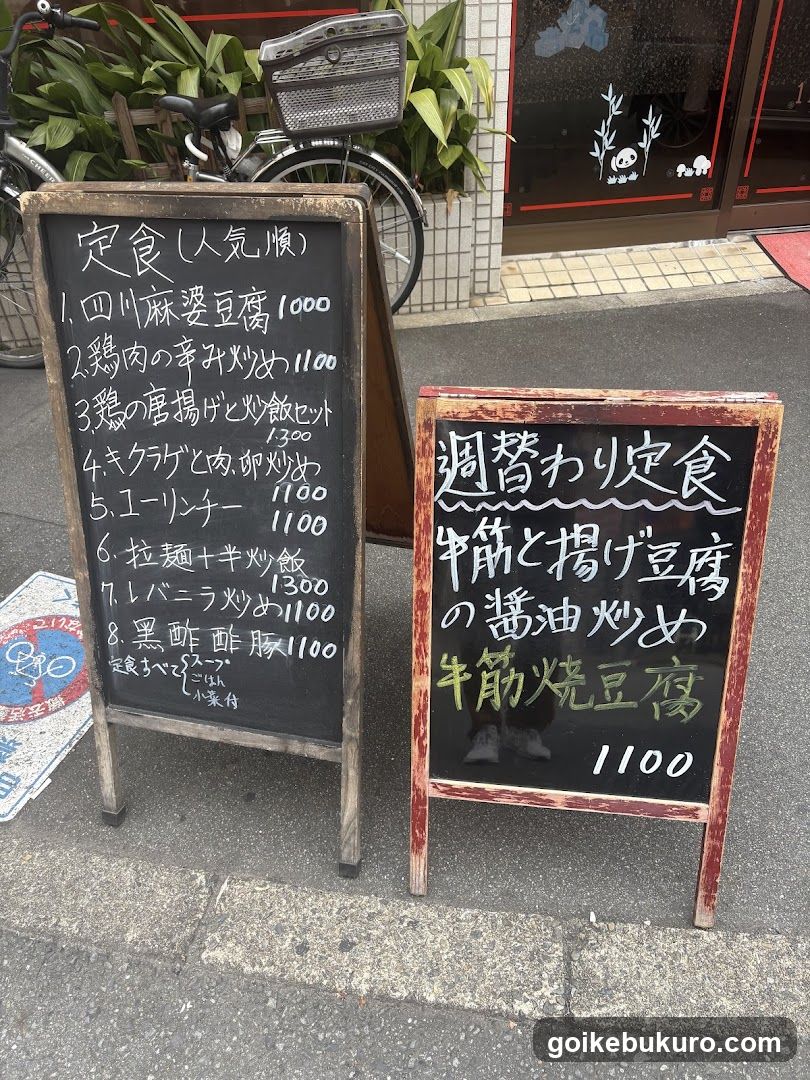 定食(人気順)
1.四川麻婆豆腐 1000
2.鶏肉の辛み炒め 1100
3.鶏の唐揚げと炒飯セット
1300
4.キクラゲと肉、卵炒め
1100
5.ユーリンチー
1100
6.拉麺+半炒飯
1300
7.レバニラ炒め 1100
8.黒酢酢豚 1100
定食すべて{スープ
ごはん
小菜付
週替わり定食
牛筋と揚げ豆腐
の醤油炒め
牛筋焼豆腐
1100
goikebukuro.com